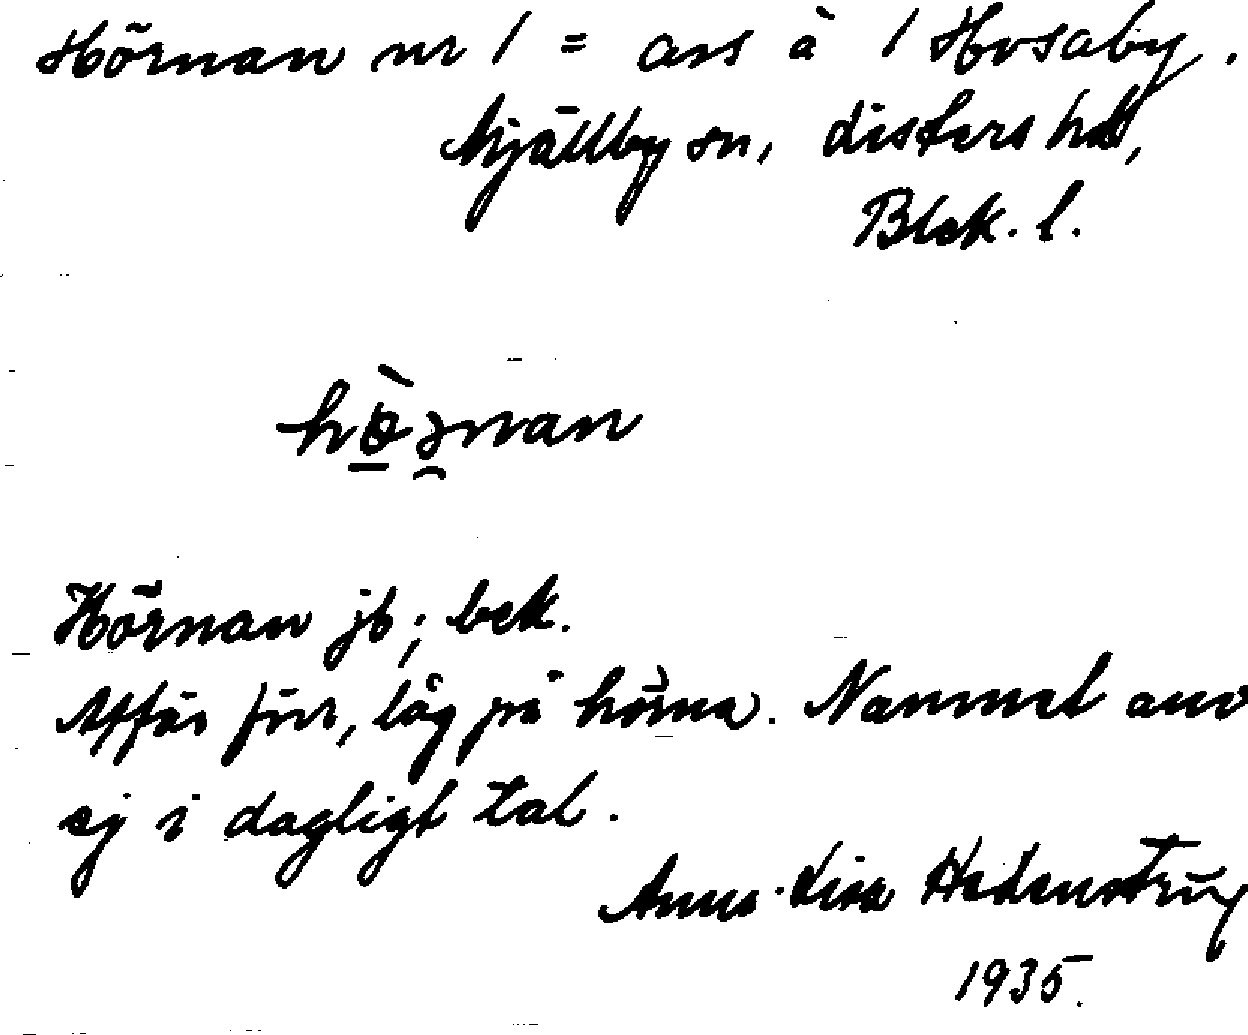 Hörnan nr 1 = avs å 1 Hosaby.
Mjällby sn, Listers hd,
Blek. l.
Hörnan jb; bek.
Affär förr, låg på hörna. Namnet anv
ej i dagligt tal.
Anna-Lisa Hedenstrüg
1935.